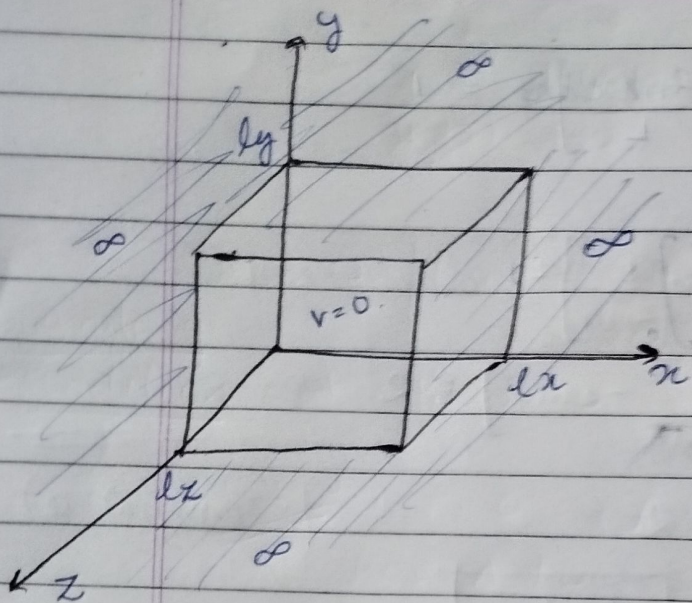 y
∞
ly
∞
∞
v=0
lx
x
lz
∞
z